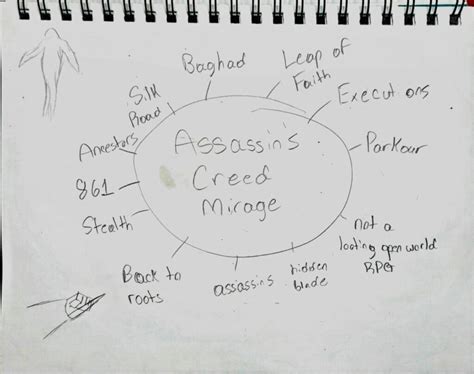 Baghad
Leap of
Faith
Executions
Parkour
not a
looting open world
RPG
hidden
blade
assassins
Back to
roots
Stealth
861
Ancestors
Silk
Road
Assassin's
Creed
Mirage